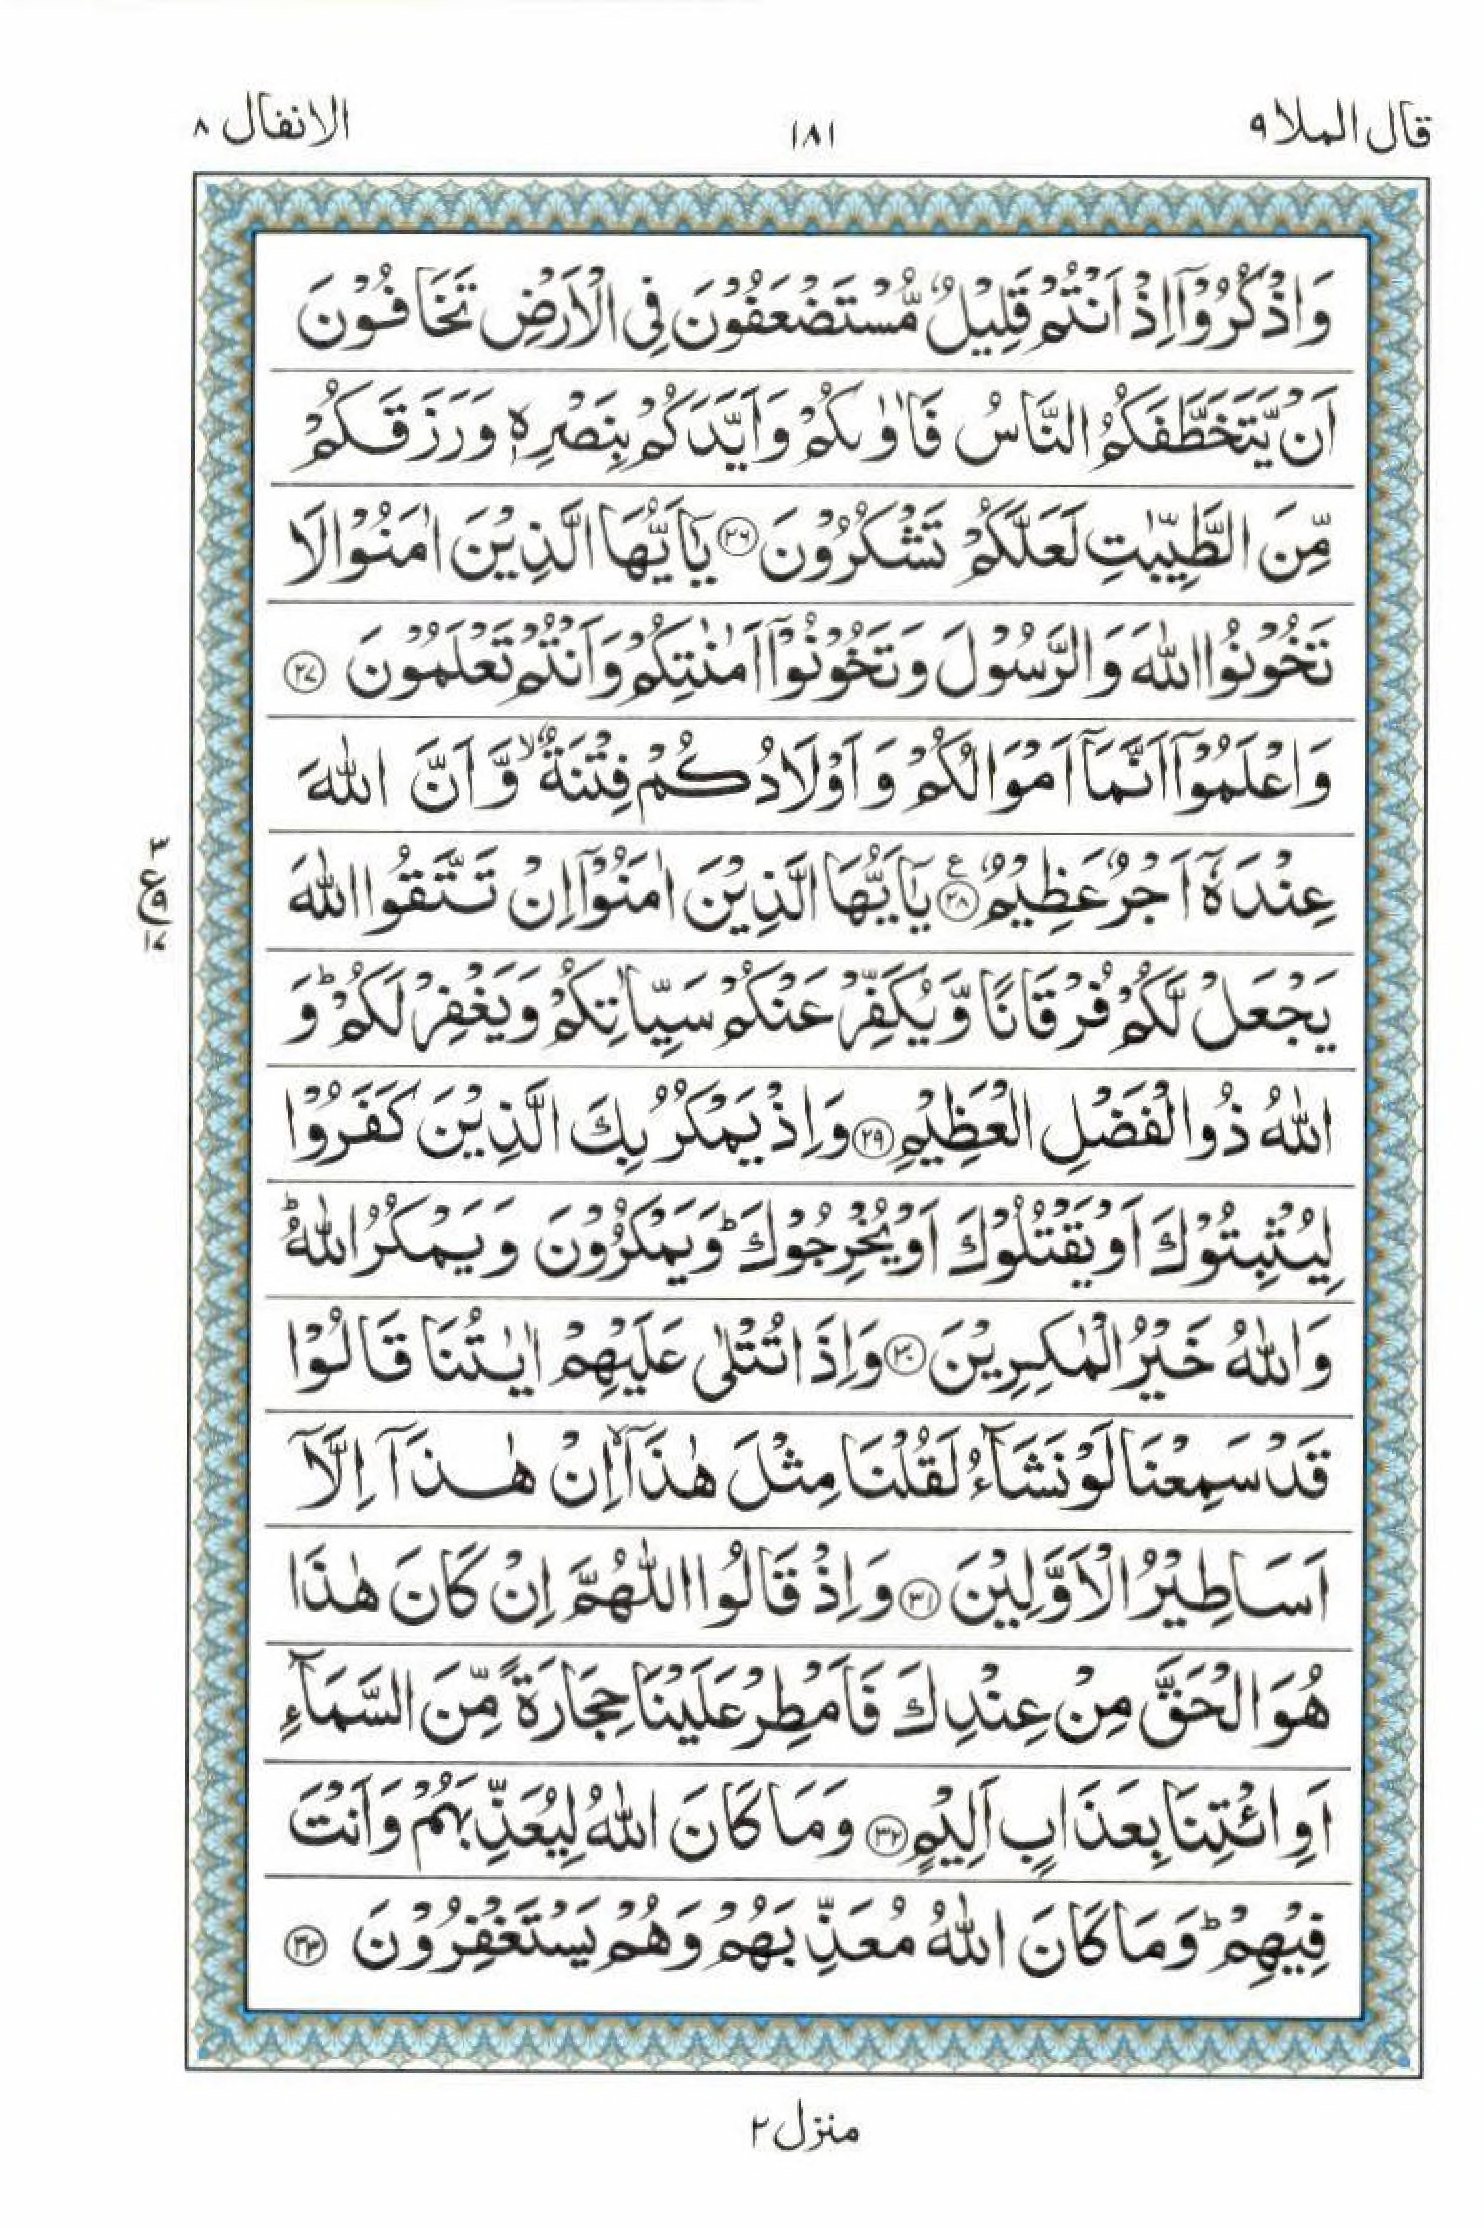 قال الملا ٩
١٨١
الانفال ٨
وَاذْكُرُوْۤا اِذْ اَنْتُمْ قَلِيْلٌ مُّسْتَضْعَفُوْنَ فِى الْاَرْضِ تَخَافُوْنَ
اَنْ يَّتَخَطَّفَكُمُ النَّاسُ فَاٰوٰىكُمْ وَاَيَّدَكُمْ بِنَصْرِهٖ وَرَزَقَكُمْ
مِّنَ الطَّيِّبٰتِ لَعَلَّكُمْ تَشْكُرُوْنَ ﴿۲۶﴾ يٰۤاَيُّهَا الَّذِيْنَ اٰمَنُوْا لَا
تَخُوْنُوا اللّٰهَ وَالرَّسُوْلَ وَتَخُوْنُوْۤا اَمٰنٰتِكُمْ وَاَنْتُمْ تَعْلَمُوْنَ ﴿۲۷﴾
وَاعْلَمُوْۤا اَنَّمَاۤ اَمْوَالُكُمْ وَاَوْلَادُكُمْ فِتْنَةٌ ۙ وَّاَنَّ اللّٰهَ
عِنْدَهٗۤ اَجْرٌ عَظِيْمٌ ﴿۲۸﴾ ع يٰۤاَيُّهَا الَّذِيْنَ اٰمَنُوْۤا اِنْ تَتَّقُوا اللّٰهَ
٣
ع
٩
١٧
يَجْعَلْ لَّكُمْ فُرْقَانًا وَّيُكَفِّرْ عَنْكُمْ سَيِّاٰتِكُمْ وَيَغْفِرْ لَكُمْ ؕ وَ
اللّٰهُ ذُو الْفَضْلِ الْعَظِيْمِ ﴿۲۹﴾ وَاِذْ يَمْكُرُ بِكَ الَّذِيْنَ كَفَرُوْا
لِيُثْبِتُوْكَ اَوْ يَقْتُلُوْكَ اَوْ يُخْرِجُوْكَ ؕ وَيَمْكُرُوْنَ وَيَمْكُرُ اللّٰهُ ؕ
وَاللّٰهُ خَيْرُ الْمٰكِرِيْنَ ﴿۳۰﴾ وَاِذَا تُتْلٰى عَلَيْهِمْ اٰيٰتُنَا قَالُوْا
قَدْ سَمِعْنَا لَوْ نَشَآءُ لَقُلْنَا مِثْلَ هٰذَاۤ ۙ اِنْ هٰذَاۤ اِلَّاۤ
اَسَاطِيْرُ الْاَوَّلِيْنَ ﴿۳۱﴾ وَاِذْ قَالُوا اللّٰهُمَّ اِنْ كَانَ هٰذَا
هُوَ الْحَقَّ مِنْ عِنْدِكَ فَاَمْطِرْ عَلَيْنَا حِجَارَةً مِّنَ السَّمَآءِ
اَوِ ائْتِنَا بِعَذَابٍ اَلِيْمٍ ﴿۳۲﴾ وَمَا كَانَ اللّٰهُ لِيُعَذِّبَهُمْ وَاَنْتَ
فِيْهِمْ ؕ وَمَا كَانَ اللّٰهُ مُعَذِّبَهُمْ وَهُمْ يَسْتَغْفِرُوْنَ ﴿۳۳﴾
منزل ٢